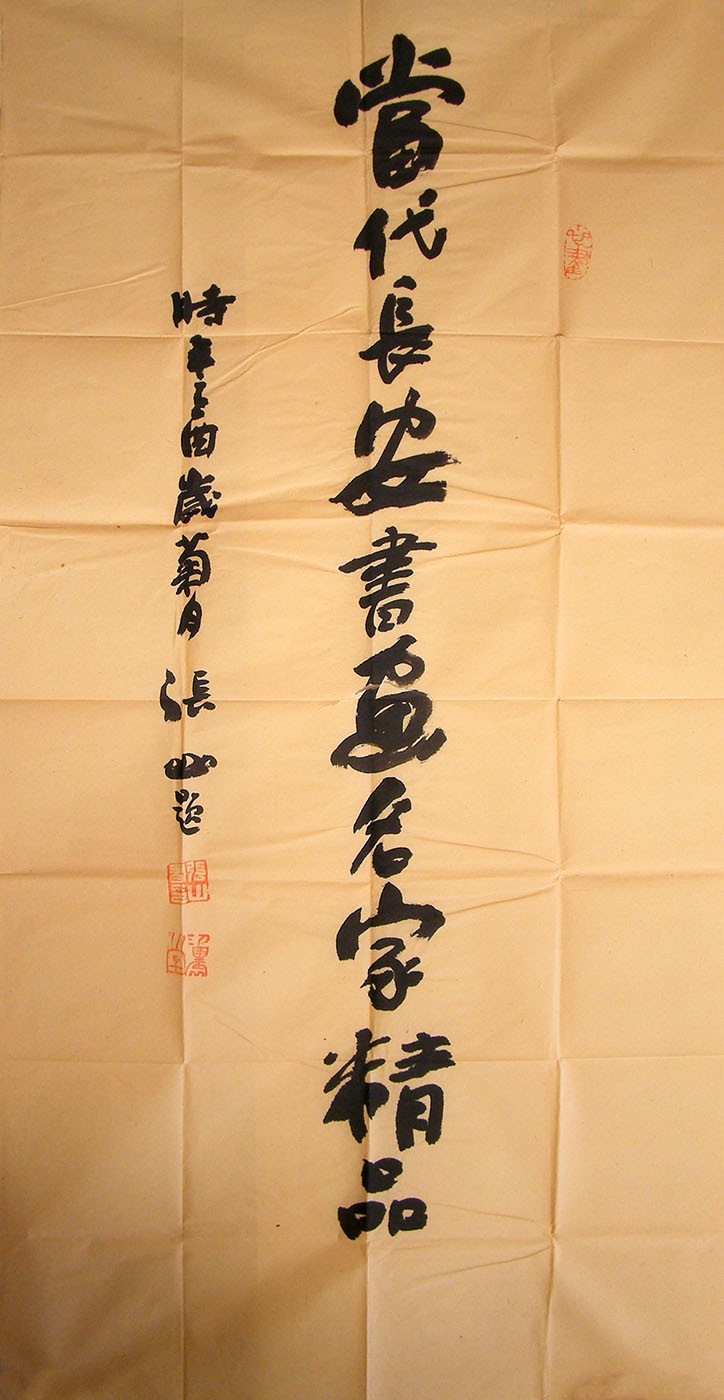 當代長安書畫名家精品
時年乙酉歲菊月 張山題